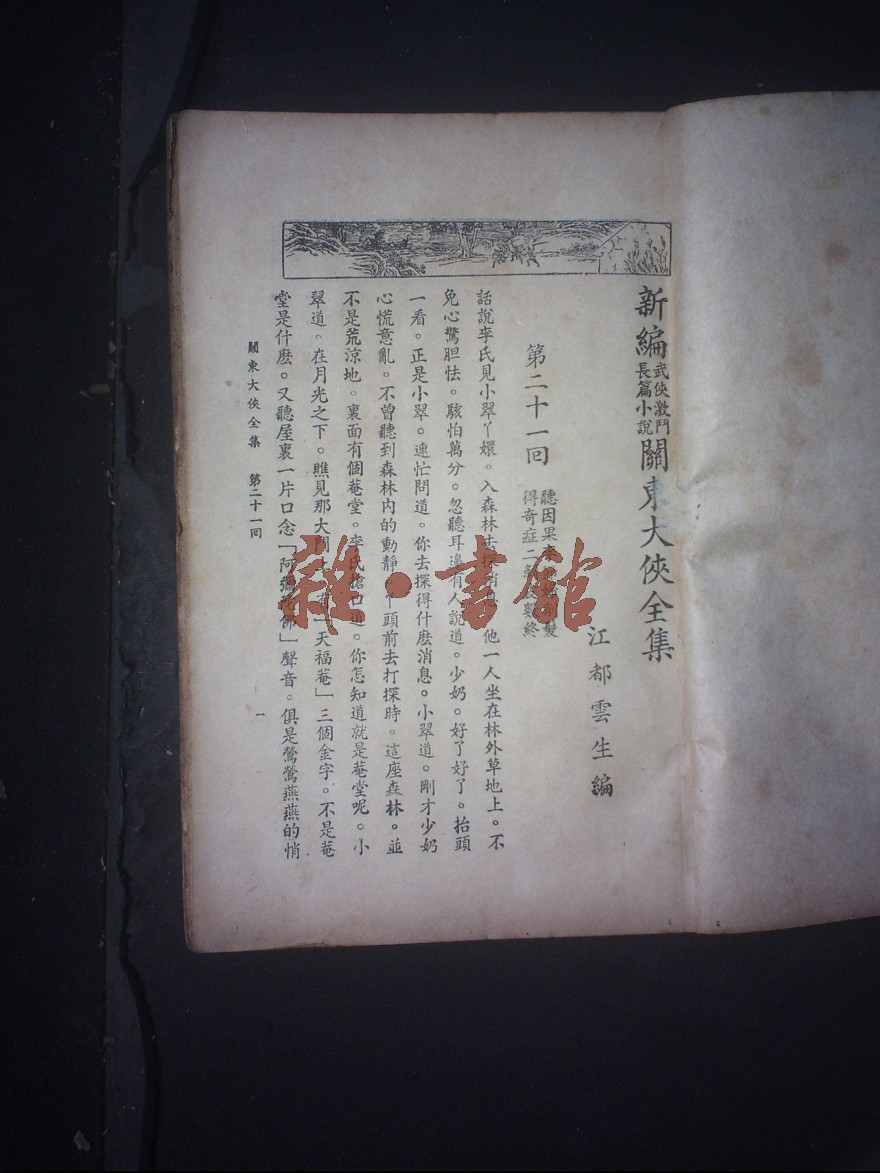 新編武俠激鬥長篇小說關東大俠全集
江都雲生編
第二十一回
聽因果
得奇症二 數終
話說李氏見小翠丫嬛。入森林去探消息。他一人坐在林外草地上。不
免心驚胆怯。駭怕萬分。忽聽耳邊有人說道。少奶。好了好了。抬頭
一看。正是小翠。連忙問道。你去探得什麽消息。小翠道。剛才少奶
心慌意亂。不曾聽到森林內的動靜。丫頭前去打探時。這座森林。並
不是荒涼地。裏面有個菴堂。李氏搶口道。你怎知道就是菴堂呢。小
翠道。在月光之下。瞧見那大門上 「天福菴」三個金字。不是菴
堂是什麽。又聽屋裏一片口念「阿彌陀佛」聲音。俱是鶯鶯燕燕的悄
關東大俠全集 第二十一回
一
雜·書館